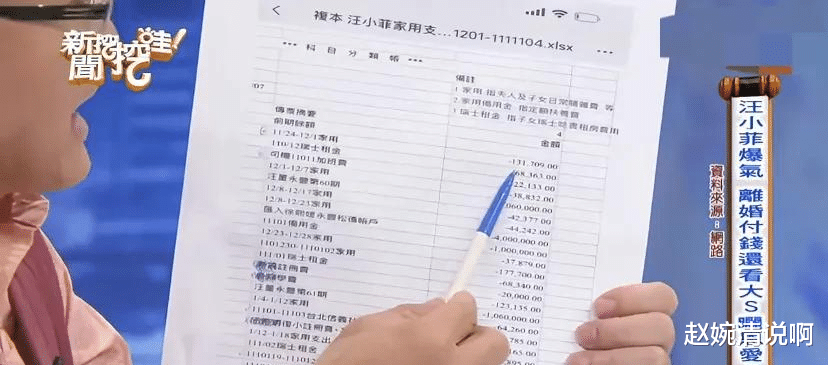 新聞挖挖哇!
複本 汪小菲家用支...1201-1111104.xlsx
••• 科目分類帳 •••
備註
1 家用 指夫人及子女日常購雜費 等
2 家用備用金 指定額扶養費
3 瑞士租金 指子女瑞士唸書租房費用
4
傳票摘要
金額
前期餘額
11/24-12/1家用
-131,709.00
110/12瑞士租金
-68,363.00
司機11011加班費
-22,133.00
12/1-12/7家用
-38,832.00
汪董永豐第60期
12/8-12/17家用
-42,377.00
12/8-12/23家用
-44,242.00
匯入徐熙媛永豐松德帳戶
-4,000,000.00
11101備用金
-1,000,000.00
12/23-12/28家用
-37,879.00
1101230-1110102家用
-177,700.00
111/01瑞士租金
-68,340.00
註冊費
-20,000.00
學費
-123,135.00
汪董永豐第61期
-1,060,000.00
1/4-1/12家用
-64,260.00
1/12-1/18家用支出
111/02瑞士租金
汪小菲爆氣 離婚付錢還看大S曬愛
資料來源:網路
赵婉清说啊